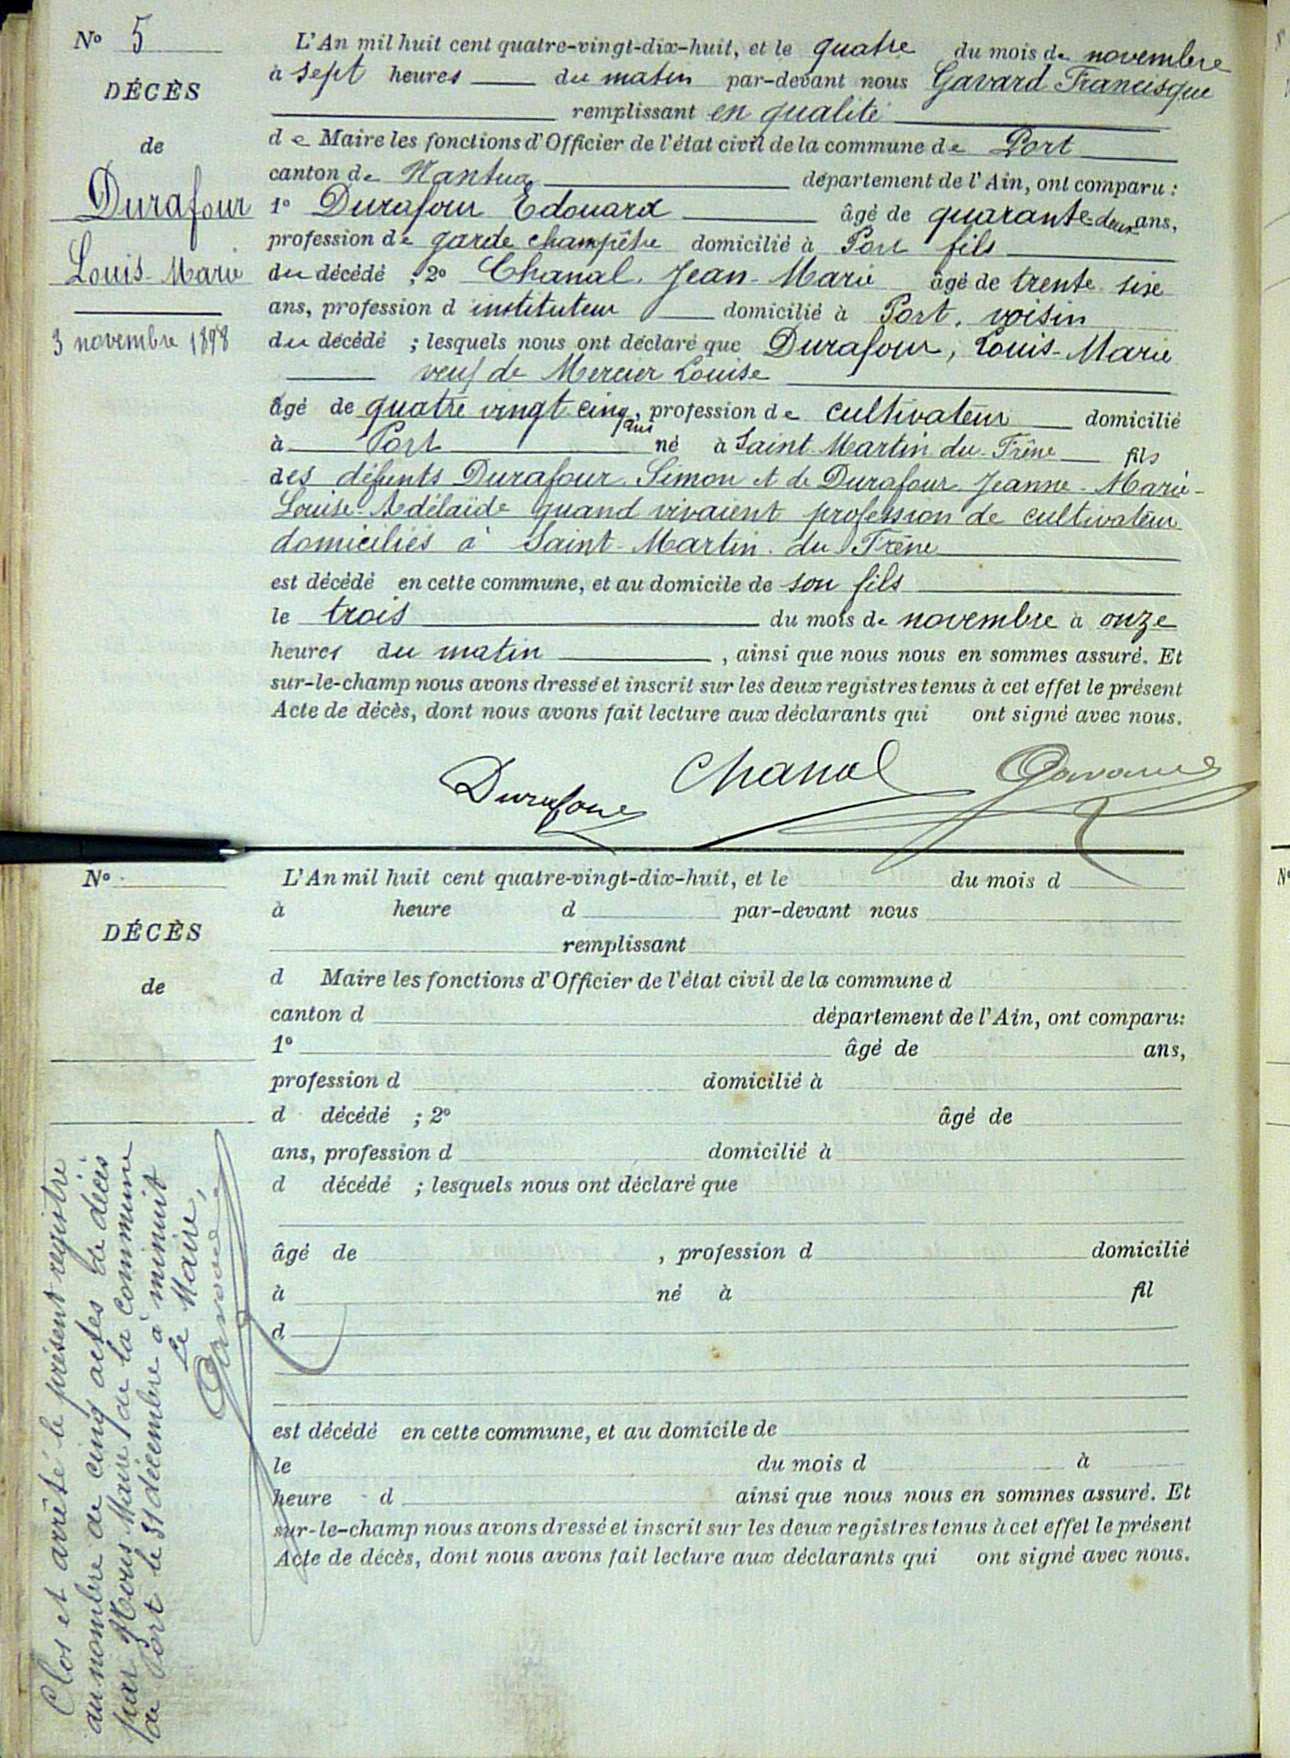 N° 5
DÉCÈS
de
Durafour
Louis-Marie
3 novembre 1898
L'An mil huit cent quatre-vingt-dix-huit, et le quatre du mois de novembre
à sept heures du matin par-devant nous Gavard Francisque
remplissant en qualité
de Maire les fonctions d'Officier de l'état civil de la commune de Port
canton de Nantua département de l'Ain, ont comparu :
1° Durafour Edouard âgé de quarante-deux ans,
profession de garde champêtre domicilié à Port fils
du décédé ; 2° Chanal Jean-Marie âgé de trente six
ans, profession d instituteur domicilié à Port, voisin
du décédé ; lesquels nous ont déclaré que Durafour, Louis-Marie
veuf de Mercier Louise
âgé de quatre vingt cinq ans, profession de cultivateur domicilié
à Port né à Saint-Martin-du-Frêne fils
des défunts Durafour Simon et de Durafour Jeanne-Marie-
Louise-Adélaïde quand vivaient profession de cultivateur
domiciliés à Saint-Martin-du-Frêne
est décédé en cette commune, et au domicile de son fils
le trois du mois de novembre à onze
heures du matin, ainsi que nous nous en sommes assuré. Et
sur-le-champ nous avons dressé et inscrit sur les deux registres tenus à cet effet le présent
Acte de décès, dont nous avons fait lecture aux déclarants qui ont signé avec nous.
Durafour Chanal Gavard
N°
DÉCÈS
de
L'An mil huit cent quatre-vingt-dix-huit, et le du mois d
à heure d par-devant nous
remplissant
d Maire les fonctions d'Officier de l'état civil de la commune d
canton d département de l'Ain, ont comparu:
1° âgé de ans,
profession d domicilié à
d décédé ; 2° âgé de
ans, profession d domicilié à
d décédé ; lesquels nous ont déclaré que
âgé de , profession d domicilié
à né à fil
d
est décédé en cette commune, et au domicile de
le du mois d à
heure d ainsi que nous nous en sommes assuré. Et
sur-le-champ nous avons dressé et inscrit sur les deux registres tenus à cet effet le présent
Acte de décès, dont nous avons fait lecture aux déclarants qui ont signé avec nous.
Clos et arrêté le présent registre
au nombre de cinq actes de décès
par Nous Maire de la commune
de Port le 31 décembre à minuit
Le Maire,
Gavard
N°